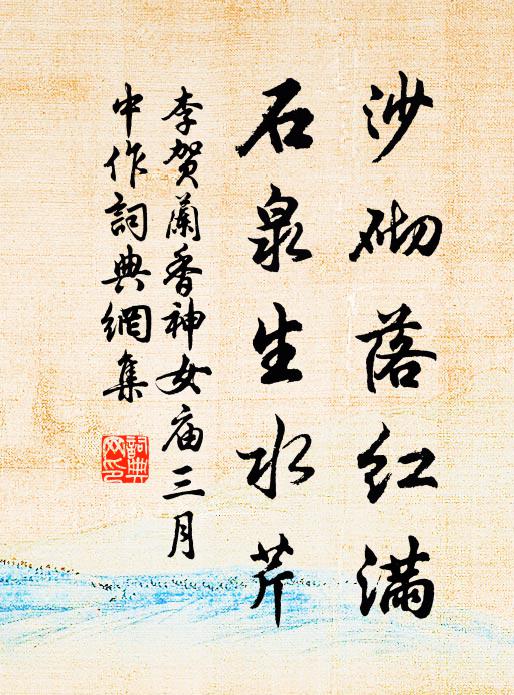 沙砌落红满
石泉生水芹
李贺兰香神女庙三月
中作词典網集
詞典